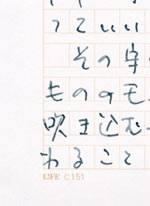 っていい
その字
ものの毛
吹き込む
わること
LIFE C151